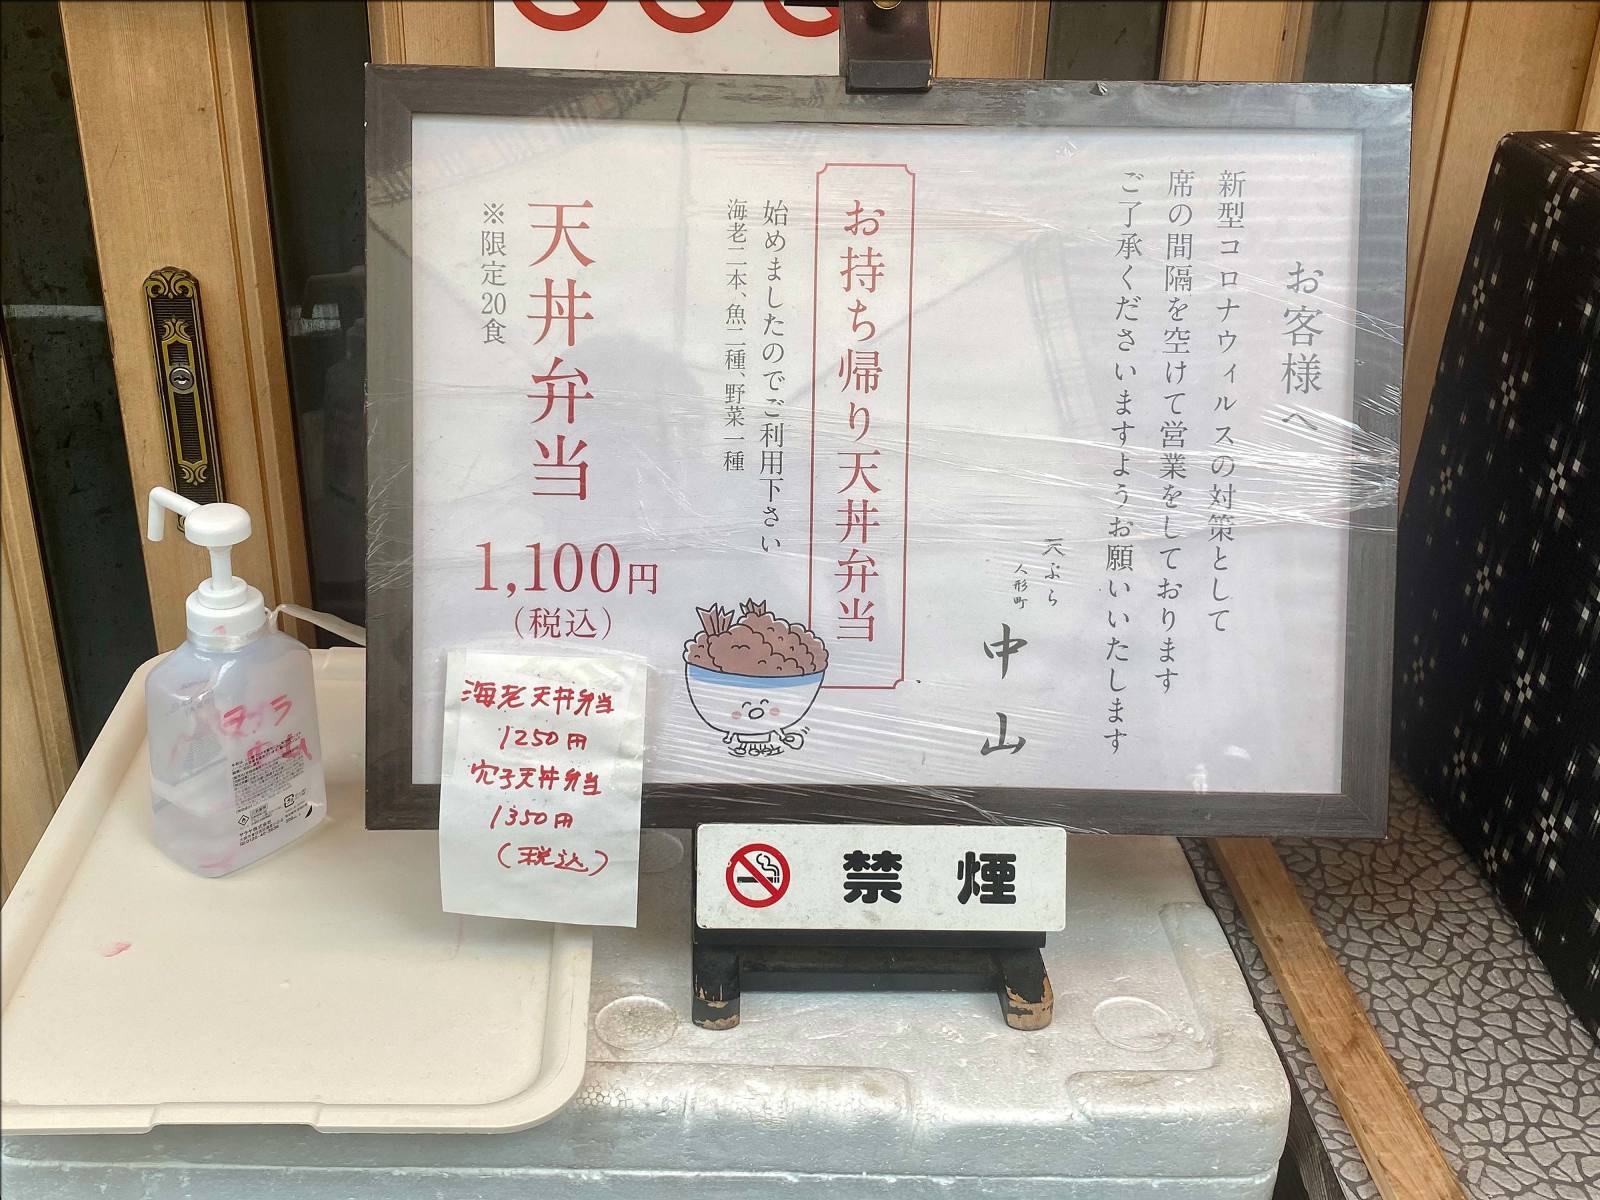 お客様へ
新型コロナウィルスの対策として
席の間隔を空けて営業をしております
ご了承くださいますようお願いいたします
天ぷら
人形町
中山
お持ち帰り天丼弁当
始めましたのでご利用下さい
海老二本、魚二種、野菜一種
天丼弁当
※限定20食
1,100円
（税込）
海老天丼弁当
1250円
穴子天丼弁当
1350円
（税込）
禁煙